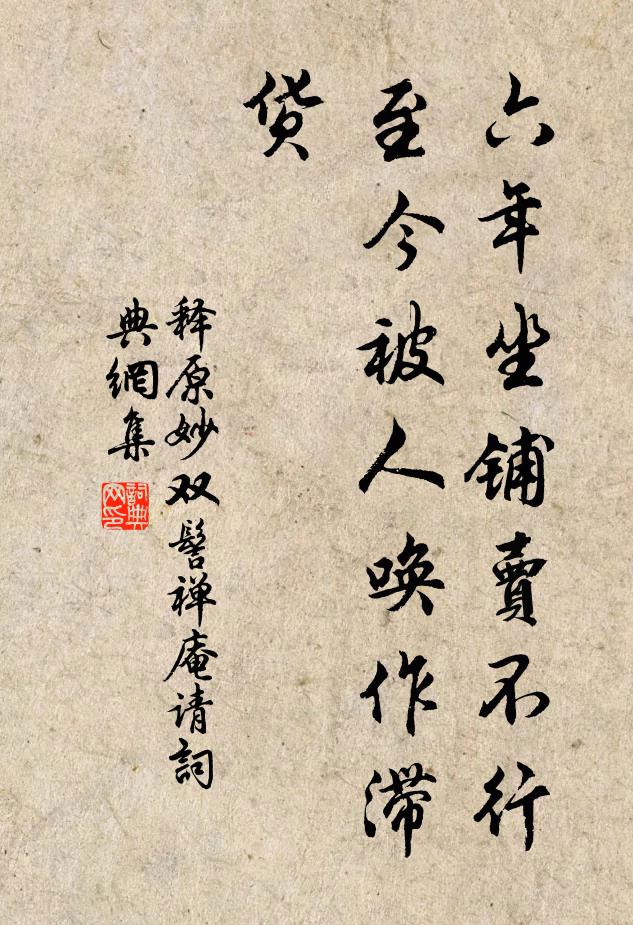 六年坐铺賣不行
至今被人唤作滞
货
释原妙双髻禅庵请詞
典網集
詞典
网印